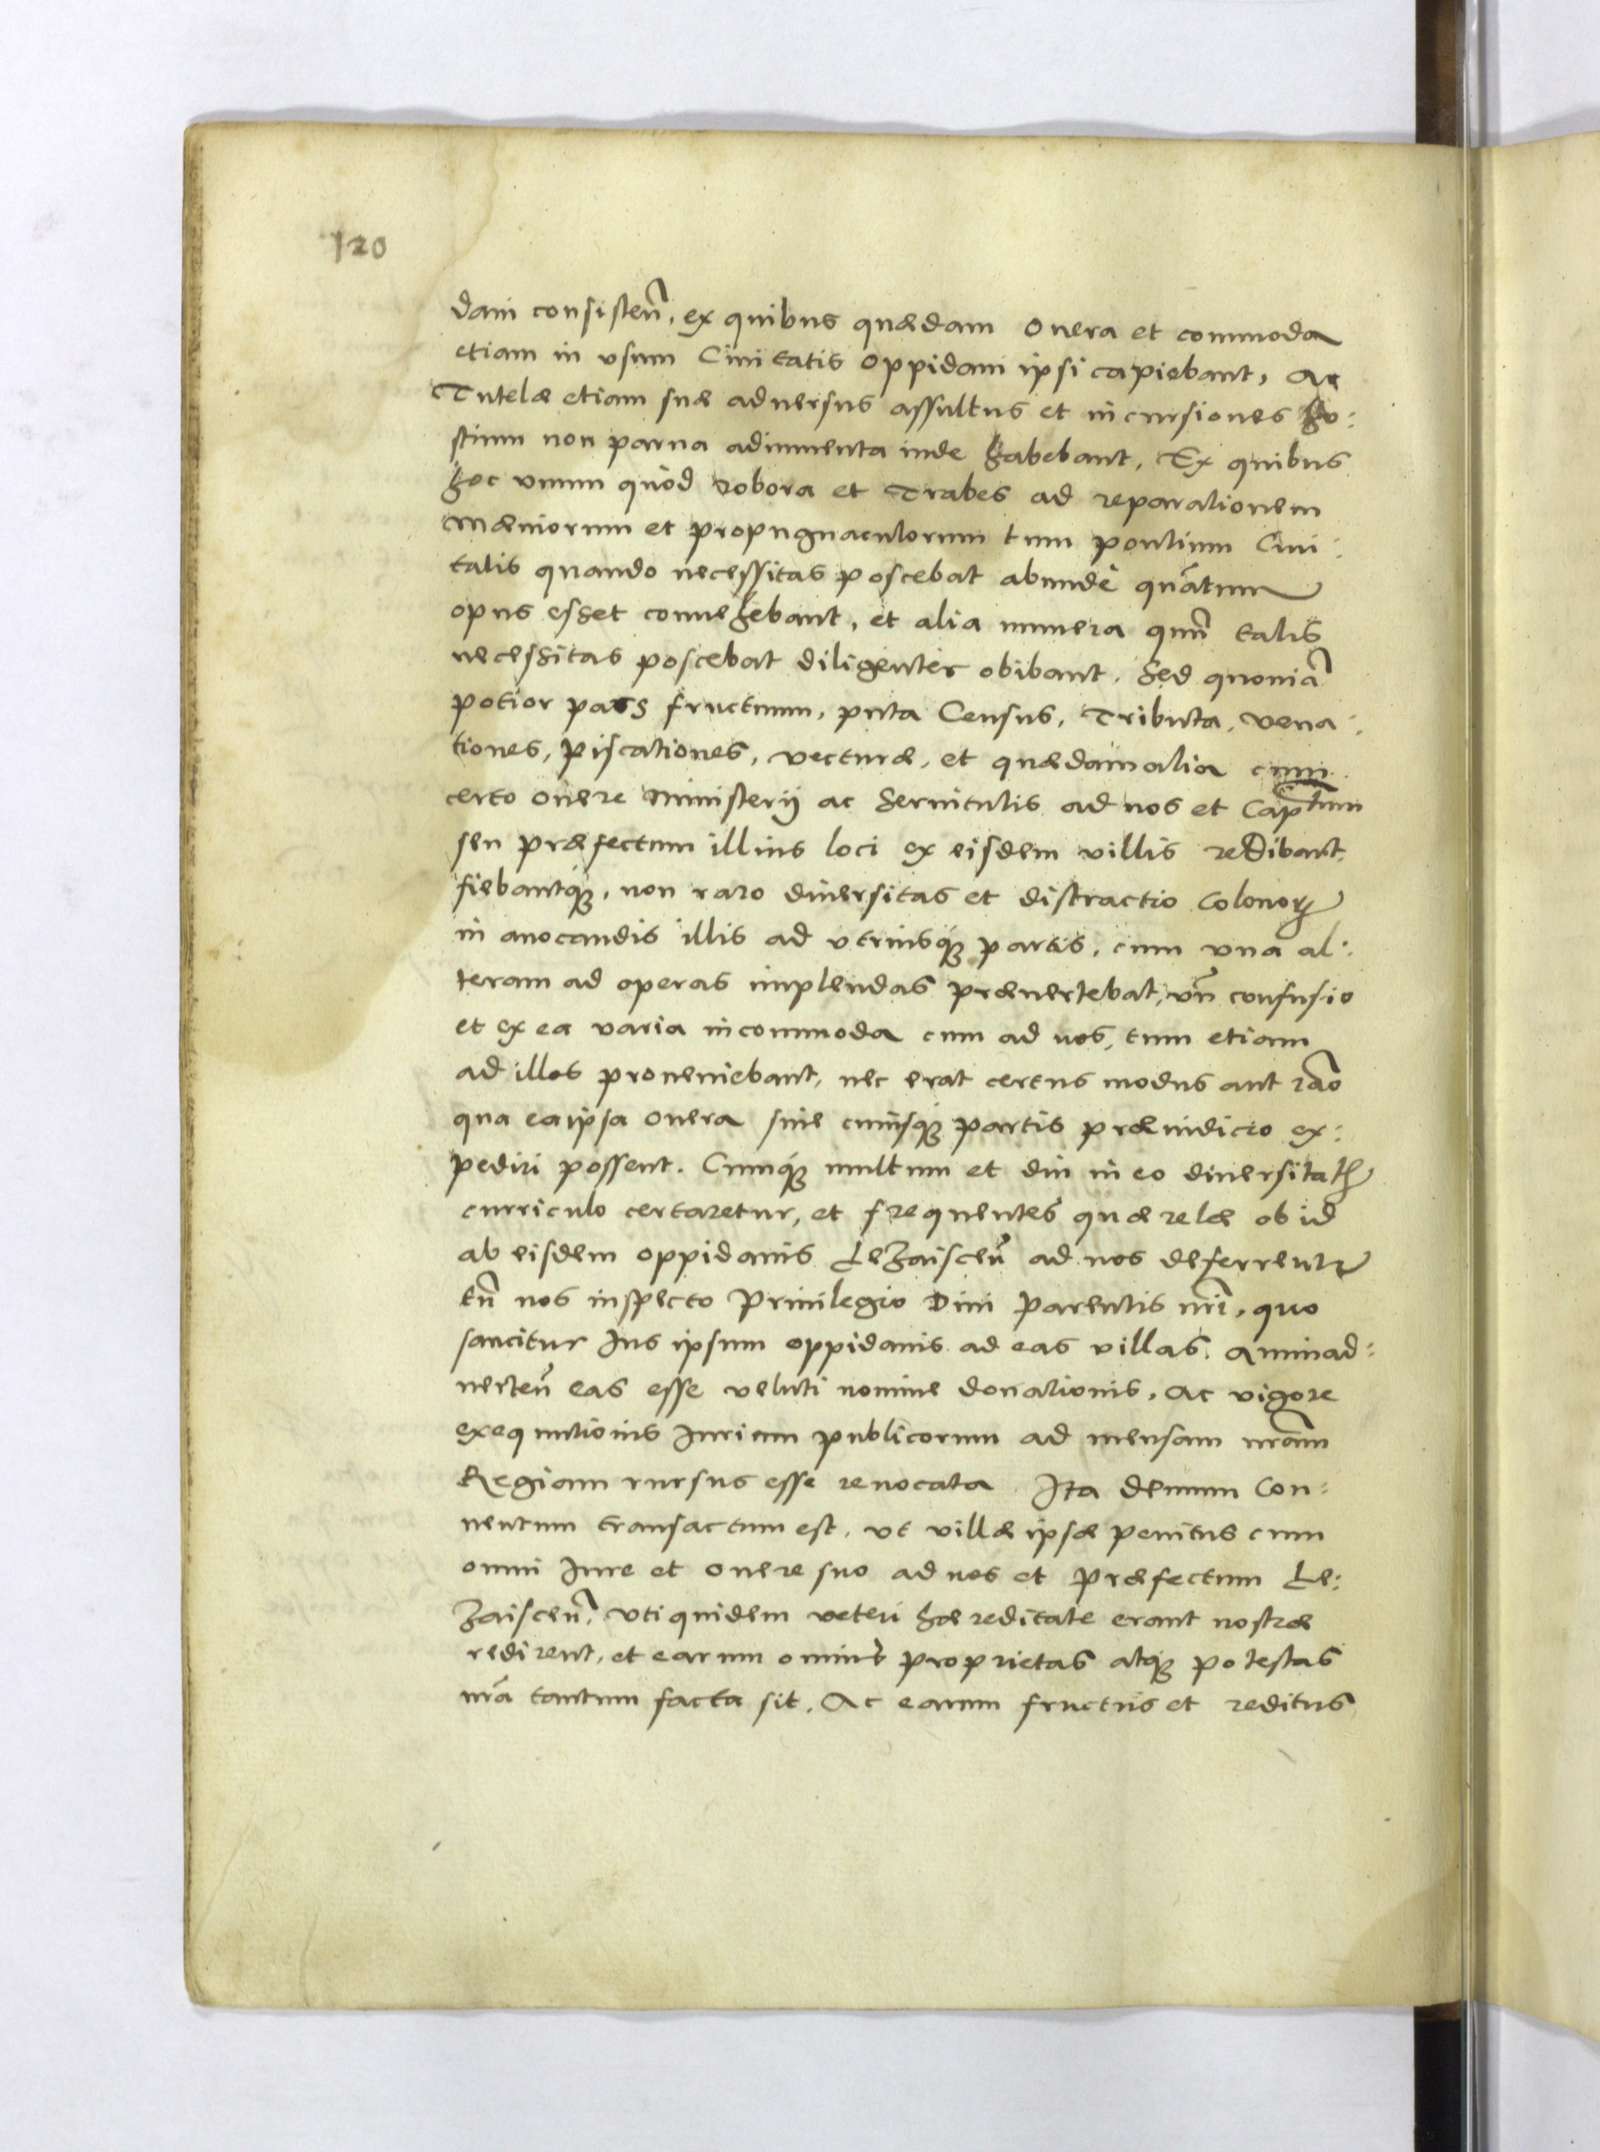 120
dam consisteñ, ex quibus quædam onera et commoda
etiam in vsum Ciuitatis oppidani ipsi capiebant, Ac
Tutelæ etiam suæ aduersus assultus et incursiones ho:
stium non parua adiumenta inde habebant, Ex quibus
hoc vnum quòd robora et Trabes ad reparationem
mæniorum et propugnaculorum tum pontium Ciui:
tatis quando necessitas poscebat abundè quātum
opus esset conuehebant, et alia munera quū talis
necessitas poscebat diligenter obibant. Sed quoniā
potior pars fructuum, puta Census, Tributa, vena:
tiones, piscationes, vecturæ, et quædam alia cum
certo onere ministerij ac seruitutis ad nos et Captm̄
seu præfectum illius loci ex eisdem villis redibant,
fiebantq́ꝫ, non raro diuersitas et distractio colonoꝝ
in auocandis illis ad vtriusq́ꝫ partis, cum vna al:
teram ad operas implendas præuertebat, vñ confusio
et ex ea varia incommoda cum ad nos, tum etiam
ad illos proueniebant, nec erat certus modus aut rāo
qua ea ipsa onera siue cuiusq́ꝫ partis præiudicio ex:
pediri possent. Cumq́ꝫ multum et diu in eo diuersitatꝭ
curriculo certaretur, et frequentes quærelæ ob id
ab eisdem oppidanis Leżaisceñ ad nos deferrentʳ
tū nos inspecto Priuilegio Diui parentis nr̄i, quo
sancitur Ius ipsum oppidanis ad eas villas. Animad:
uerteñ eas esse veluti nomine donationis, Ac vigore
exequutionis Iurium publicorum ad mensam nr̄am
Regiam rursus esse reuocata. Ita demum Con:
uentum transactum est, vt villæ ipsæ penitus cum
omni Iure et onere suo ad nos et Præfectum Le:
żaisceñ, vti quidem veteri hæreditate erant nostræ
redirent, et earum omnis proprietas atqꝫ potestas
nr̄a tantum facta sit. Ac earum fructus et reditus